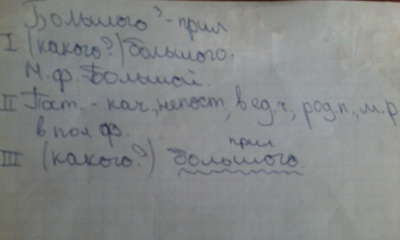 Большого³ - прил
I (какого?) большого.
Н. ф. Большой.
II Пост. - кач, непост, в ед ч, род п., м. р
в пол ф.
прил
III (какого?) большого